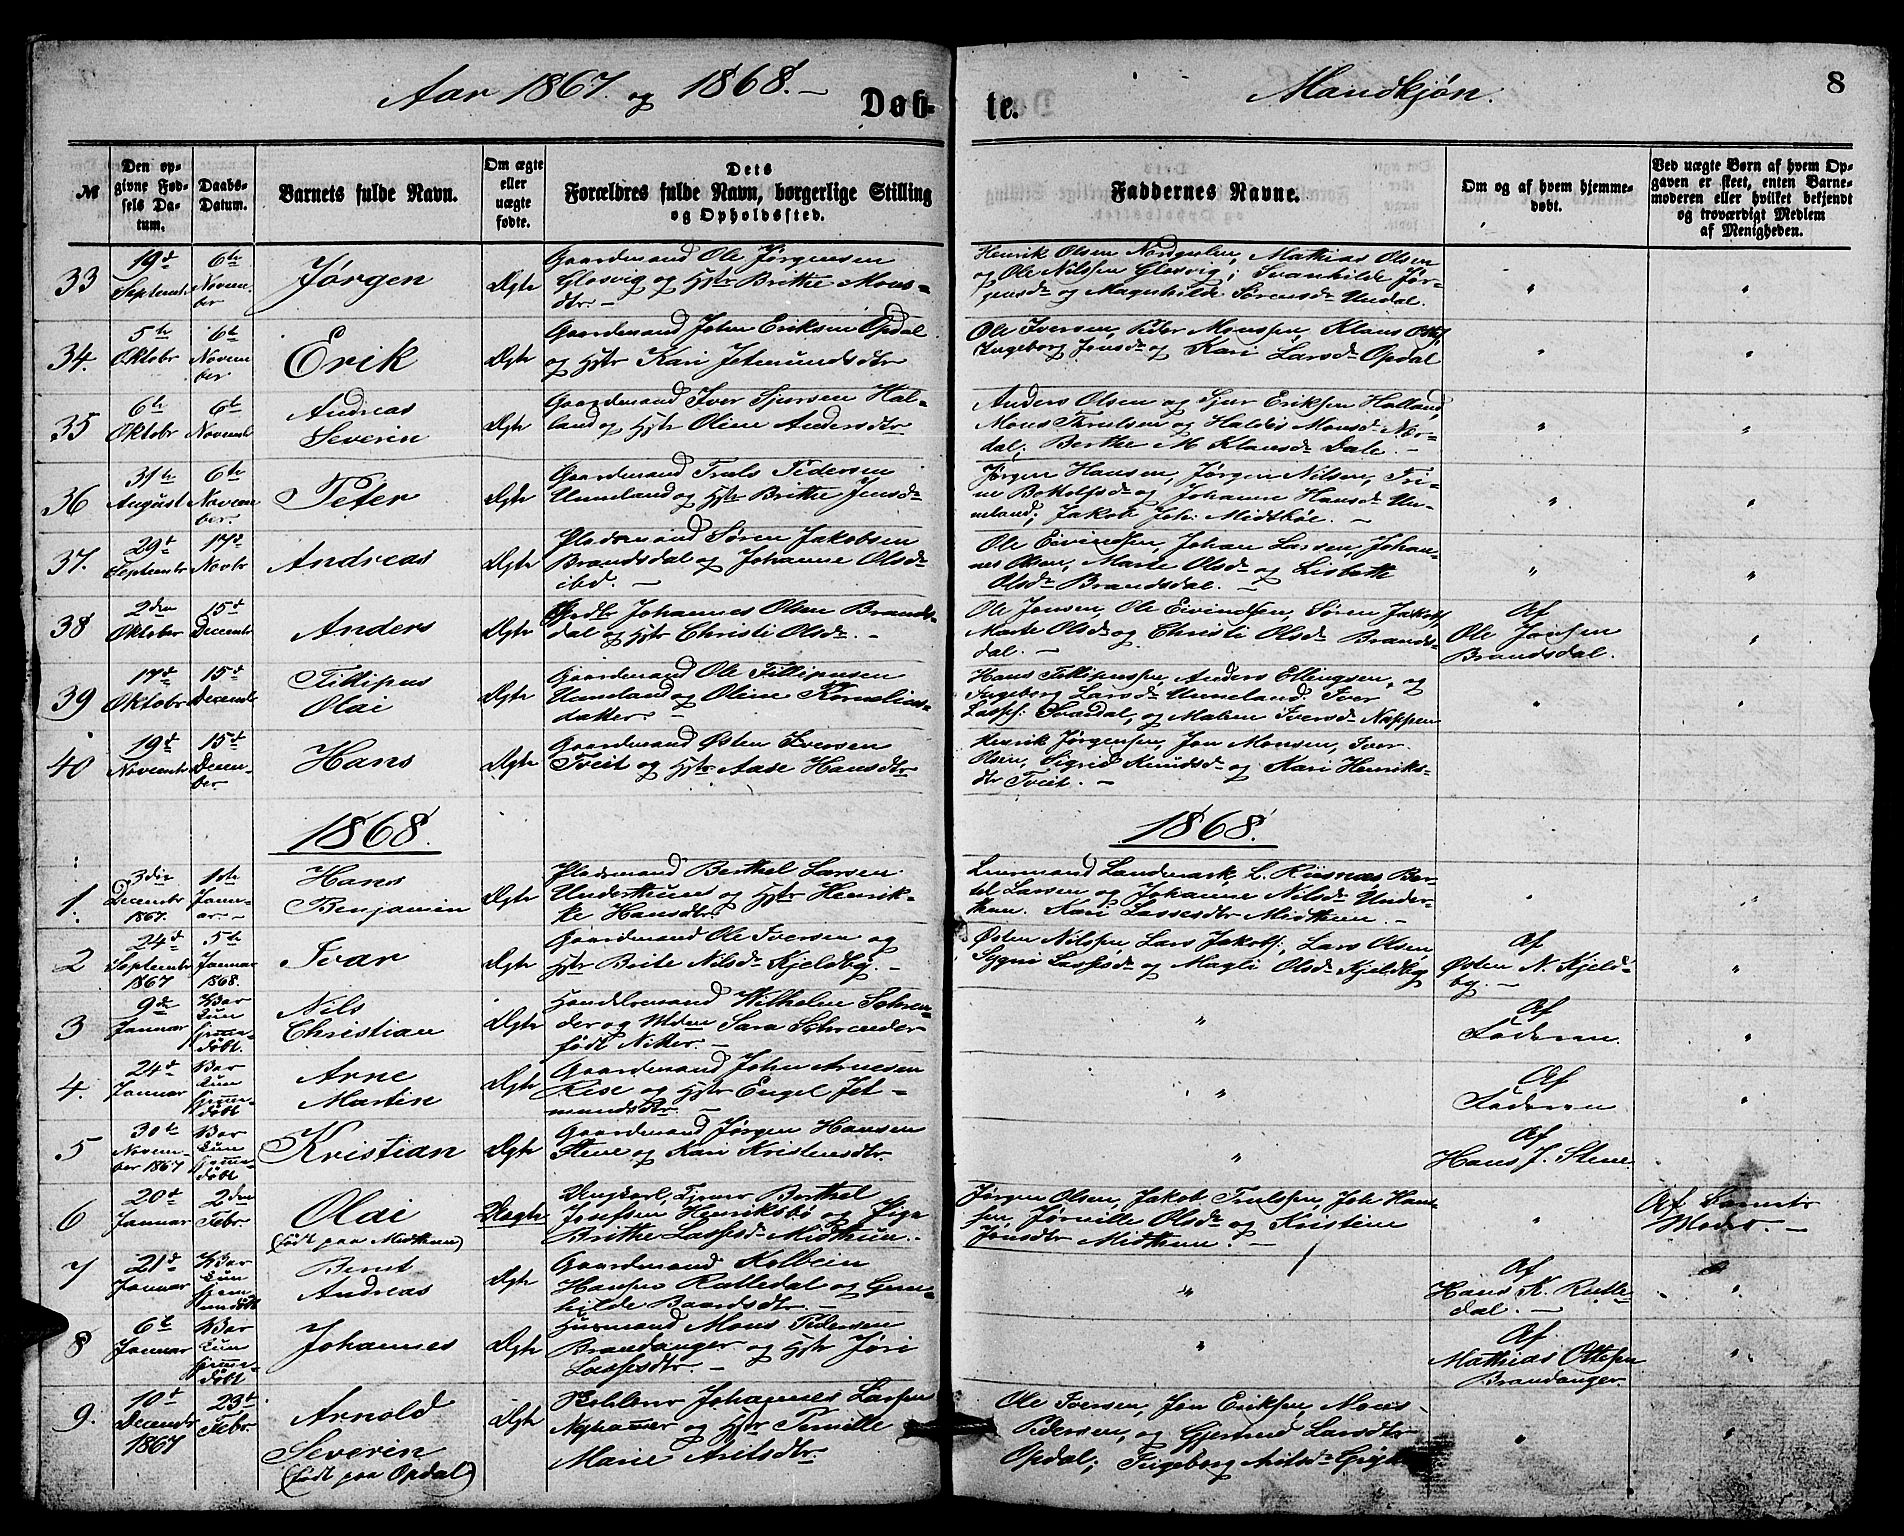 Aar 1867 og 1868. —
Døb-
te.
Mandkjøn.
8
№
Den op-
givne Fød-
sels Da-
tum.
Daabs-
Datum.
Barnets fulde Navn.
Om ægte
eller
uægte
fødte.
Dets
Forældres fulde Navn, borgerlige Stilling
og Opholdssted.
Faddernes Navne.
Om og af hvem hjemme-
døbt.
Ved uægte Børn af hvem Op-
gaven er skeet, enten Barne-
moderen eller hvilket bekjendt
og troværdigt Medlem
af Menigheden.
33
19d
Septembr
6te
Novem-
ber
Jørgen
Ægte
Gaardmand Ole Jørgensen
Glosvig og Hstr Brithe Mons-
dtr —
Henrik Olsen Nordgulen, Mathias Olsen
og Ole Nilssen Glosvig; Svanhilde Jør-
gensd og Magnhilde Sørensd Undal.
34.
5te
Oktobr
6te
Novem
ber
Erik
Ægte
Gaardmand John Eriksen Opdal
og Hstr Kari Jetmundsdtr
Ole Iversen, Peder Monssen, Klaus
Ingeborg Jonsd og Kari Larsd Opdal
35
6te
Oktobr
6te
Novemb
Andreas
Severin
Ægte
Gaardmand Iver Sjursen Hal-
land og Hstr Oline Andersdtr
Anders Olsen og Sjur Eriksen Halland,
Mons Trulsen og Haldis Monsd Nor-
dal; Berthe M Klausd Dale. —
36
31te
August
6te
Novem
ber.
Peter
Ægte
Gaardmand Truls Pedersen
Unneland og Hstr Brithe Jensd
Jørgen Hansen, Jørgen Nilsen, Tri-
ne Bottolfsd og Johanne Hansd Un-
neland; Jakob Joh. Midtbøe. —
37.
29d
Septembr
17de
Novbr
Andreas
Ægte
Pladsmand Søren Jakobsen
Brandsdal og Johanne Olsd
ibd. —
Ole Eivindsen, Johan Larsen, Johan-
nes Olsen, Marte Olsd og Lisbeth
Olsd Brandsdal. —
38
2den
Oktober
15d
Decembr
Anders
Ægte
Grdbr Johannes Olsen Brands-
dal og Hstr Christi Olsd. —
Ole Jonsen, Ole Eivindsen, Søren Jakobs,
Marte Olsd og Christi Olsd Brands-
dal. —
Af
Ole Jonsen
Brandsdal.
39
17d
Oktobr
15d
Decemb
Fillipus
Olai
Ægte
Gaardmand Ole Fillipusen
Unneland og Oline Kornelius-
datter —
Hans Fillipussen, Anders Ellingsen, og
Ingeborg Larsd Unneland. Iver
Lasses. Svardal, og Malene Iversd Nappen
40
19d
Novembr
15d
Decem-
ber
Hans
Ægte
Gaardmand Østen Iversen
Tveit og Hstr Aase Hansdtr
Henrik Jørgensen, Jon Monsen, Iver
Olsen, Sigrid Knudsd og Kari Henriks-
dtr Tveit. —
1868.
1868.
1.
3die
Decembr
1867.
1ste
Janu-
ar. —
Hans
Benjamin
Ægte
Pladsmand Berthel Larsen
Underthun og Hstr Henrik-
ke Hansdtr.
Lensmand Landmark, L. Risnæs Ber-
tel Larsen og Johanne Nilsd Under-
thun. Kari Lassesdtr Midthun. —
2
24d
Septembr
1867
5te
Januar
1868.
Ivar
Ægte
Gaardmand Ole Iversen og
Hstr Brite Nilsd Kjeldby. —
Østen Nilssen, Lars Jakobs., Lars Olsen,
Sygni Lassesd og Magli Olsd Kjeldby
Af
Østen N. Kjeld-
by. —
3
9de
Januar
Bar
Kun
hjemme-
døbt.
Nils
Christian
Ægte
Handelsmand Wilhelm Schren-
der og Mdm Sara Schrender
født Nitter. —
Af
Faderen.
4.
24d
Januar
Bar
Kun
hjemme-
døbt
Arne
Martin
Ægte
Gaardmand John Arnesen
Rise og Hstr Engel Jet-
mundsdtr. —
Af
Faderen
5
30te
Novem-
ber 1867
Bar
Kun
hjemme-
døbt
Kristian
Ægte
Gaardmand Jørgen Hansen
Stene og Kari Kristensdtr.
Af
Hans J. Stene
6
20d
Januar
2den
Febr
Olai
(født paa Midthun)
Uægte
Ungkarl, Tjener Berthel
Josefsen Henriksbø og Pige
Brithe Lassesd Midthun. -
Jørgen Olsen, Jakob Trulssen, Joh Han-
sen, Jørnille Olsd og Kristine
Jonsdtr Midthun. —
Af Barnets
Moder. —
7
21d
Januar
Bar
Kun
hjem-
medøbt
Bernt
Andreas
Ægte
Gaardmand Kolbein
Hansen Rutledal og Gun-
hilde Baardsdtr. —
Af
Hans K. Rutle-
dal. —
8
6te
Januar
Bar
Kun
hjemme-
døbt
Johannes
Ægte
Husmand Mons Pedersen
Brandanger og Hstr Jøri
Lassesdtr. —
Af
Mathias Ottesen
Brandanger.
9.
10d
Decembr
1867
23d
Febr.
Arnold
Severin
(født paa Opdal)
Ægte
Johannes Larsen
Nyhammer og Hstr Pernille
Marie Axelsdtr.
Ole Iversen, Jon Eriksen, Mons
Pedersen, og Gjermid Larsdtr
Opdal; Ingeborg Nilsd